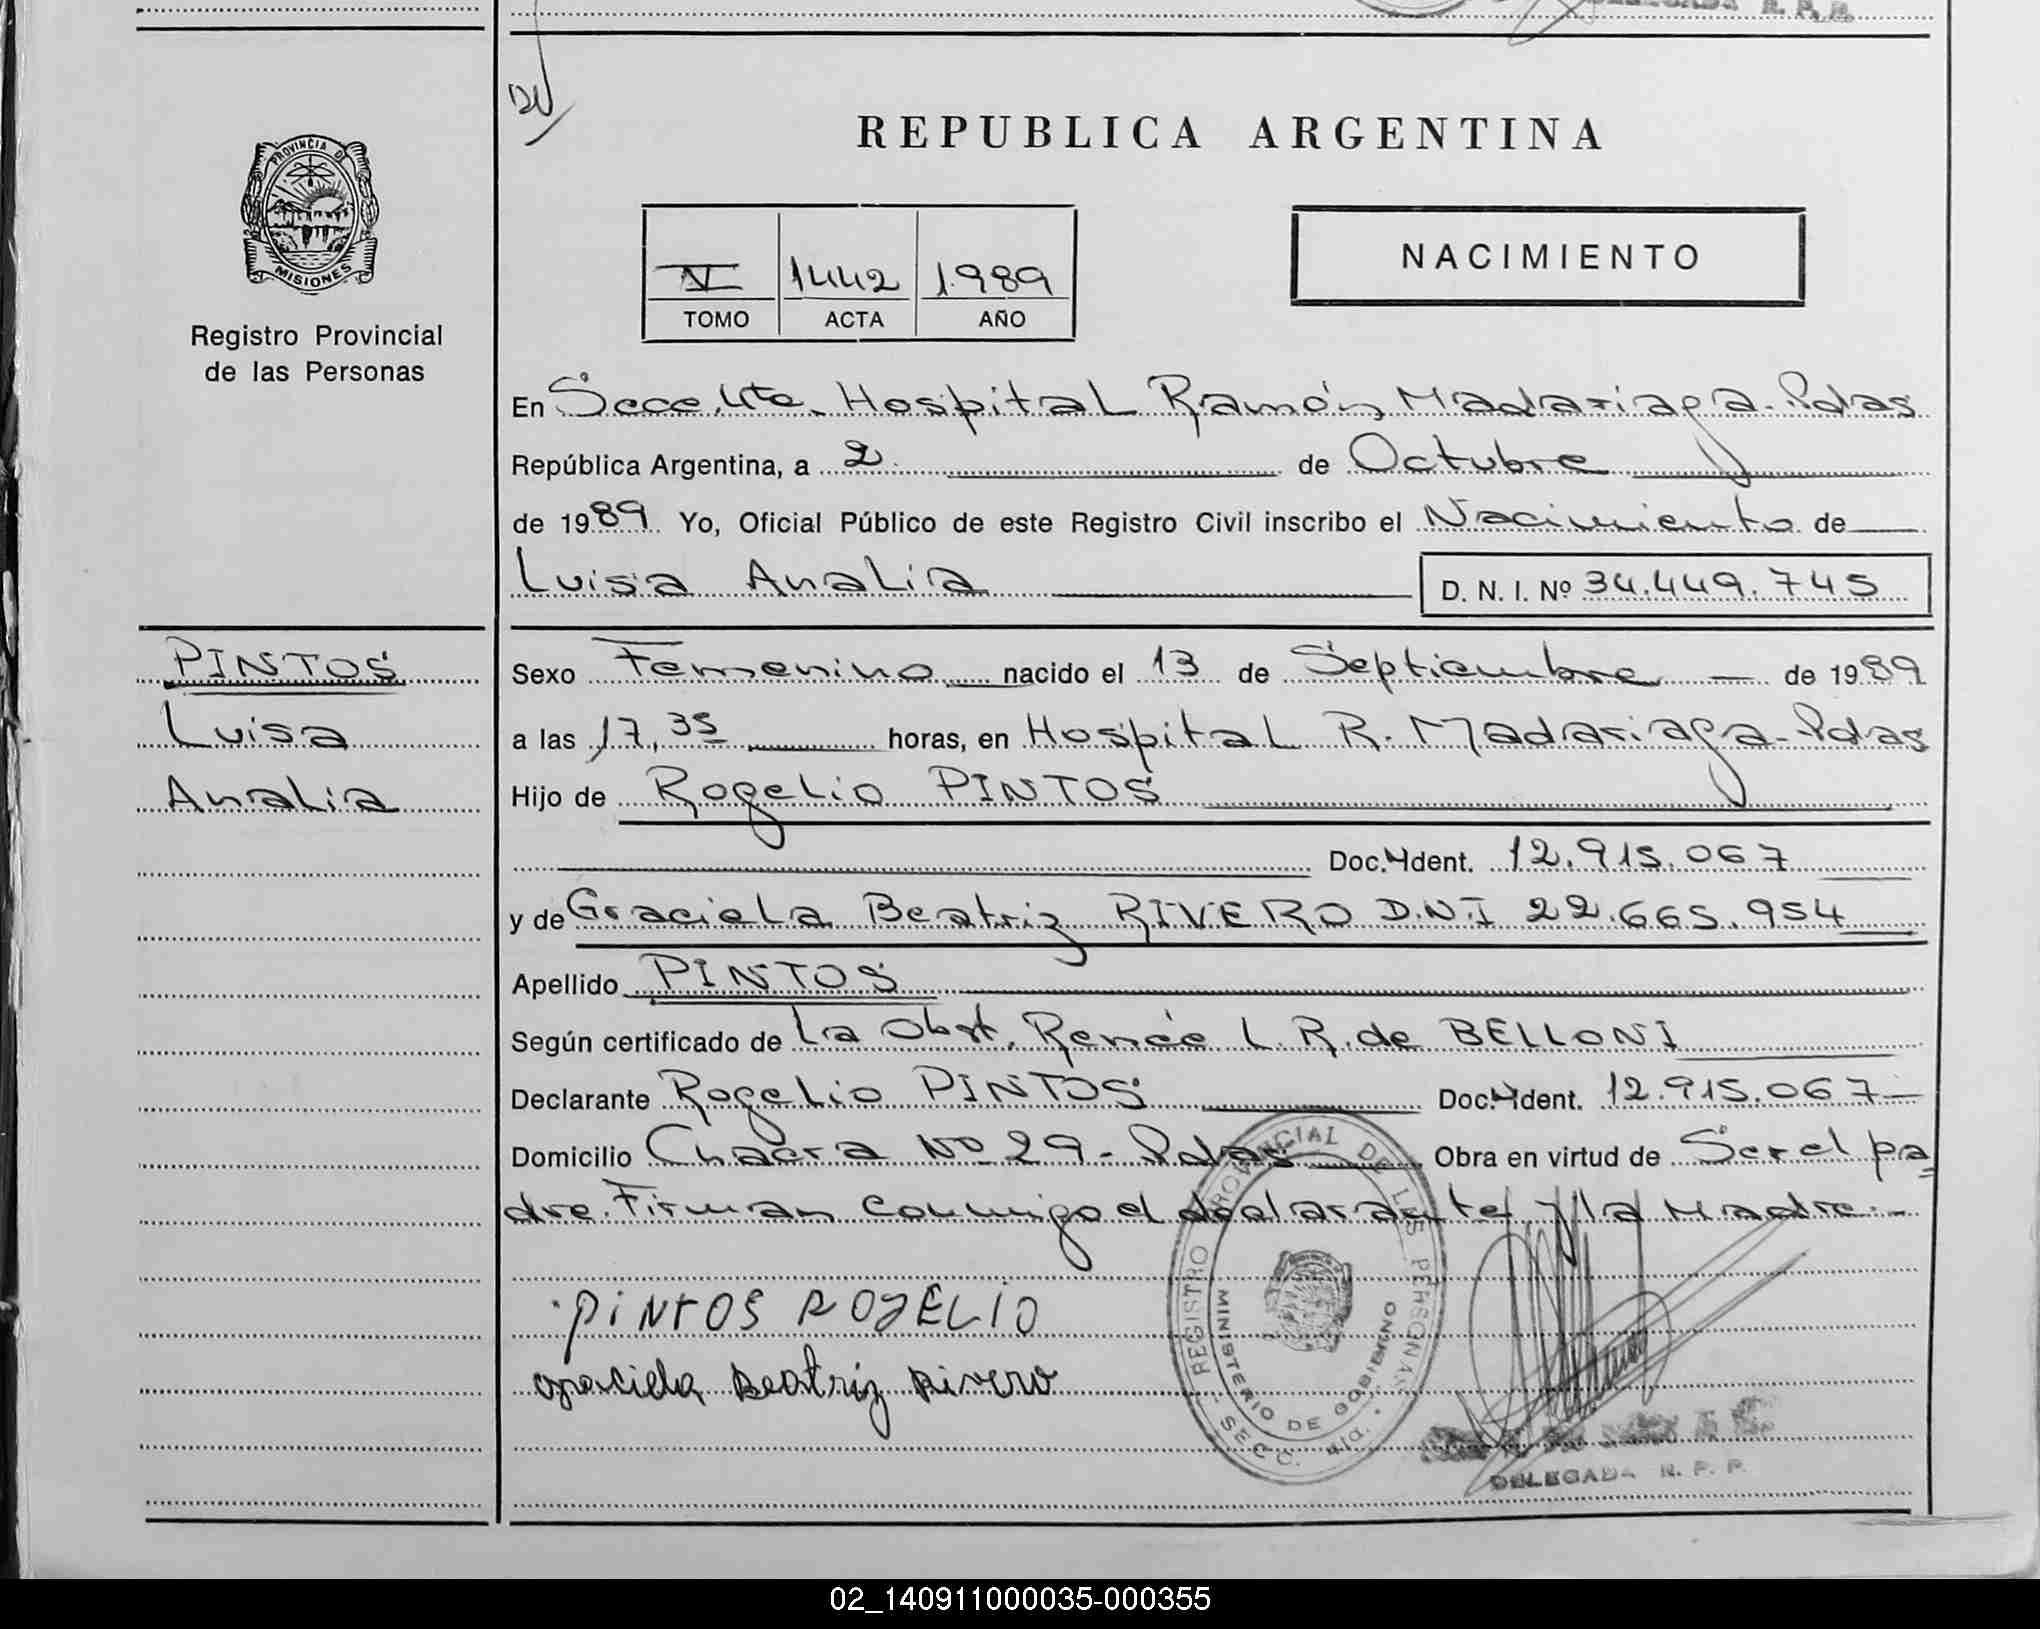 DELEGADA R. P. P.
REPUBLICA ARGENTINA
PROVINCIA DE
MISIONES
Registro Provincial
de las Personas
NACIMIENTO
IV 1442 1.989
TOMO ACTA AÑO
En Secc. 4ta. Hospital Ramón Madariaga - Pdas
República Argentina, a 2 de Octubre
de 1989 Yo, Oficial Público de este Registro Civil inscribo el Nacimiento de
Luisa Analia D. N. I. Nº 34.449.745
PINTOS
Luisa
Analia
Sexo Femenino nacido el 13 de Septiembre de 1989
a las 17,35 horas, en Hospital R. Madariaga - Pdas
Hijo de Rogelio PINTOS
Doc. Ident. 12.915.067
y de Graciela Beatriz RIVERO D.N.I 22.665.954
Apellido PINTOS
Según certificado de La Obst. Renée L. R. de BELLONI
Declarante Rogelio PINTOS Doc. Ident. 12.915.067
Domicilio Chacra Nº 29 - Pdas Obra en virtud de Ser el pa
dre. Firman conmigo el declarante y la Madre.-
PiNtOS ROgELIO
graciela Beatriz Rivero
REGISTRO PROVINCIAL DE LAS PERSONAS
MINISTERIO DE GOBIERNO
SECC. 4ta.
DELEGADA R. P. P.
02_140911000035-000355